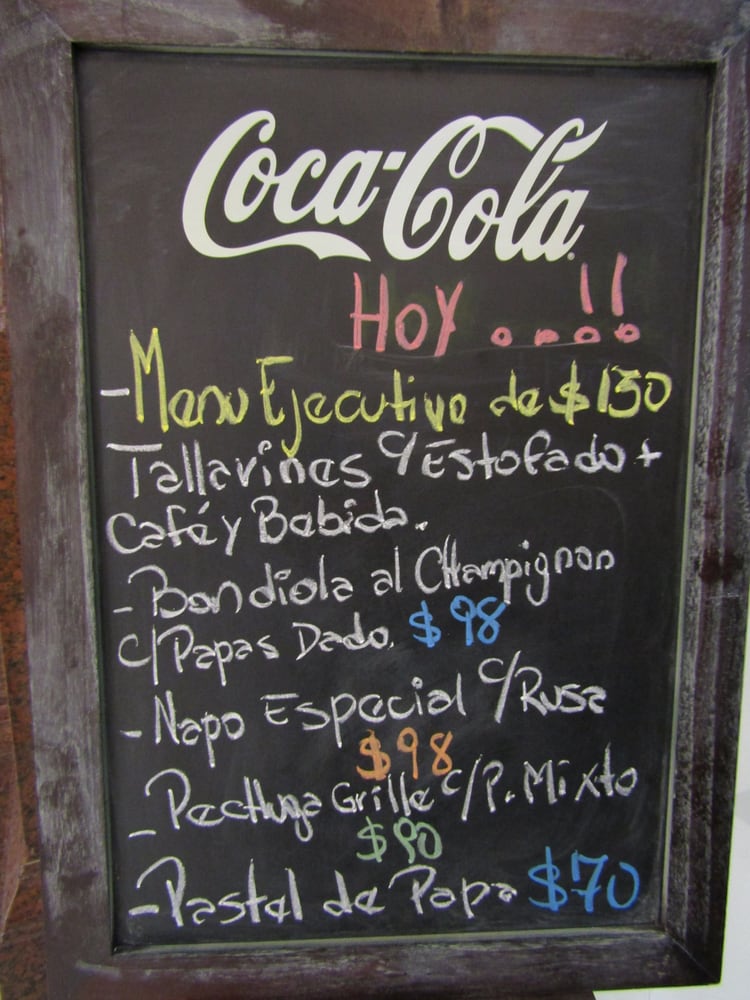 Coca-Cola
HOY ....!!
-Menu Ejecutivo de $130
Tallarines c/Estofado +
Café y Bebida.
-Bondiola al CHampignon
c/Papas Dado. $98
-Napo Especial c/Rusa
$98
-Pechuga Grille c/P. Mixto
$90
-Pastel de Papa $70